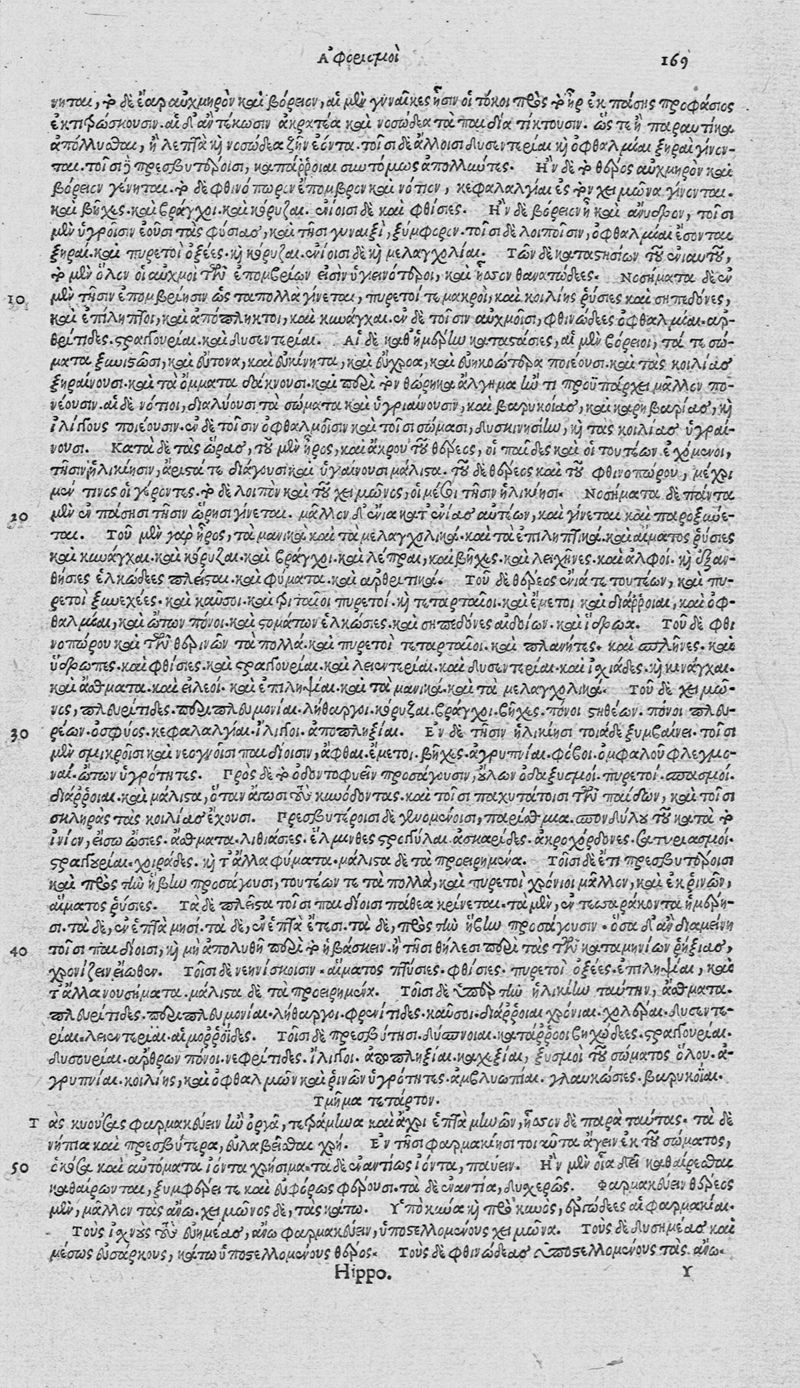 Ἀφορισμοὶ 169
νηται, τὸ δὲ ἔαρ αὐχμηρὸν καὶ βόρειον, αἱ μὲν γυναῖκες ᾗσιν οἱ τόκοι πρὸς τὸ ἦρ ἐκ πάσης προφάσιος
ἐκτιτρώσκουσιν. αἳ δ' ἂν τέκωσιν ἀκρατέα καὶ νοσώδεα τὰ παιδία τίκτουσιν. ὥς τε ἢ παραυτίκα
ἀπόλλυσθαι, ἢ λεπτὰ καὶ νοσώδεα ζῆν ἐόντα. τοῖσι δὲ ἄλλοισι δυσεντερίαι καὶ ὀφθαλμίαι ξηραὶ γίνον-
ται. τοῖσι δὲ πρεσβυτέροισι, κατάρροιαι συντόμως ἀπολλῦντες. Ἢν δὲ τὸ θέρος αὐχμηρὸν καὶ
βόρειον γένηται, τὸ δὲ φθινόπωρον ἔπομβρον καὶ νότιον, κεφαλαλγίαι ἐς τὸν χειμῶνα γίνονται.
καὶ βῆχες. καὶ βράγχοι. καὶ κόρυζαι. ἐνίοισι δὲ καὶ φθίσιες. Ἢν δὲ βόρειον ᾖ καὶ ἄνυδρον, τοῖσι
μὲν ὑγροῖσιν ἐοῦσι τὰς φύσιας, καὶ τῇσι γυναιξὶ, ξύμφορον. τοῖσι δὲ λοιποῖσιν, ὀφθαλμίαι ἔσονται
ξηραὶ. καὶ πυρετοὶ ὀξέες. καὶ κόρυζαι. ἐνίοισι δὲ καὶ μελαγχολίαι. Τῶν δὲ καταστασίων τοῦ ἐνιαυτοῦ,
τὸ μὲν ὅλον οἱ αὐχμοὶ τῶν ἐπομβρίων εἰσὶν ὑγιεινότεροι, καὶ ἧσσον θανατώδεες. Νοσήματα δὲ ἐν
10 μὲν τῇσιν ἐπομβρίῃσιν ὡς τὰ πολλὰ γίνεται, πυρετοί τε μακροὶ, καὶ κοιλίης ῥύσιες καὶ σηπεδόνες,
καὶ ἐπίληπτοι, καὶ ἀπόπληκτοι, καὶ κυνάγχαι. ἐν δὲ τοῖσιν αὐχμοῖσι, φθινώδεες ὀφθαλμίαι. ἀρ-
θρίτιδες. στραγγουρίαι. καὶ δυσεντερίαι. Αἱ δὲ καθ' ἡμέρην καταστάσιες, αἱ μὲν βόρειοι, τά τε σώ-
ματα ξυνιστῶσι, καὶ εὔτονα, καὶ εὐκίνητα, καὶ εὔχροα, καὶ εὐηκοώτερα ποιέουσι. καὶ τὰς κοιλίας
ξηραίνουσι. καὶ τὰ ὄμματα δάκνουσι. καὶ περὶ τὸν θώρηκα ἄλγημα ἤν τι προϋπάρχει μᾶλλον πο-
νέουσιν. αἱ δὲ νότιοι, διαλύουσι τὰ σώματα καὶ ὑγραίνουσιν, καὶ βαρυηκοίας, καὶ καρηβαρίας, καὶ
ἰλίγγους ποιέουσιν. ἐν δὲ τοῖσιν ὀφθαλμοῖσιν καὶ τοῖσι σώμασι, δυσκινησίην, καὶ τὰς κοιλίας ὑγραί-
νουσι. Κατὰ δὲ τὰς ὥρας, τοῦ μὲν ἦρος, καὶ ἄκρου τοῦ θέρεος, οἱ παῖδες καὶ οἱ τουτέων ἐχόμενοι,
τῇσιν ἡλικίῃσιν, ἄριστά τε διάγουσι καὶ ὑγιαίνουσι μάλιστα. τοῦ δὲ θέρεος καὶ τοῦ φθινοπώρου, μέχρι
μέν τινος οἱ γέροντες. τὸ δὲ λοιπὸν καὶ τοῦ χειμῶνος, οἱ μέσοι τῇσιν ἡλικίῃσι. Νοσήματα δὲ πάντα
20 μὲν ἐν πάσῃσι τῇσιν ὥρῃσι γίνεται. μᾶλλον δ' ἔνια κατ' ἐνίας αὐτέων, καὶ γίνεται καὶ παροξύνε-
ται. Τοῦ μὲν γὰρ ἦρος, τὰ μανικὰ. καὶ τὰ μελαγχολικὰ. καὶ τὰ ἐπιληπτικὰ. καὶ αἵματος ῥύσιες
καὶ κυνάγχαι. καὶ κόρυζαι. καὶ βράγχοι. καὶ λέπραι, καὶ βῆχες. καὶ λειχῆνες. καὶ ἀλφοὶ. καὶ ἐξαν-
θήσιες ἑλκώδεες πλεῖσται. καὶ φύματα. καὶ ἀρθριτικὰ. Τοῦ δὲ θέρεος ἔνιά τε τουτέων, καὶ πυ-
ρετοὶ ξυνεχέες. καὶ καῦσοι. καὶ τριταῖοι πυρετοί. καὶ τεταρταῖοι. καὶ ἔμετοι καὶ διάρροιαι, καὶ ὀφ-
θαλμίαι, καὶ ὤτων πόνοι. καὶ στομάτων ἑλκώσιες. καὶ σηπεδόνες αἰδοίων. καὶ ἵδρωα. Τοῦ δὲ φθι
νοπώρου καὶ τῶν θερινῶν τὰ πολλὰ. καὶ πυρετοὶ τεταρταῖοι. καὶ πλανῆτες. καὶ σπλῆνες. καὶ
ὕδρωπες. καὶ φθίσιες. καὶ στραγγουρίαι. καὶ λειεντερίαι. καὶ δυσεντερίαι. καὶ ἰσχιάδες. καὶ κυνάγχαι.
καὶ ἄσθματα. καὶ εἰλεοὶ. καὶ ἐπιληψίαι. καὶ τὰ μανικὰ. καὶ τὰ μελαγχολικὰ. Τοῦ δὲ χειμῶ-
νος, πλευρίτιδες. περιπλευμονίαι. λήθαργοι. κόρυζαι. βράγχοι. βῆχες. πόνοι στηθέων. πόνοι πλευ-
30 ρέων. ὀσφύος. κεφαλαλγίαι. ἴλιγγοι. ἀποπληξίαι. Ἐν δὲ τῇσιν ἡλικίῃσι τοιάδε ξυμβαίνει. τοῖσι
μὲν σμικροῖσι καὶ νεογνοῖσι παιδίοισιν, ἄφθαι. ἔμετοι. βῆχες. ἀγρυπνίαι. φόβοι. ὀμφαλοῦ φλεγμο-
ναί. ὤτων ὑγρότητες. Πρὸς δὲ τὸ ὀδοντοφυεῖν προσάγουσιν, οὔλων ὀδαξυσμοὶ. πυρετοὶ. σπασμοὶ.
διάρροιαι. καὶ μάλιστα, ὅταν ἀνάγωσι τοὺς κυνόδοντας. καὶ τοῖσι παχυτάτοισι τῶν παίδων, καὶ τοῖσι
σκληρὰς τὰς κοιλίας ἔχουσι. Πρεσβυτέροισι δὲ γενομένοισι, παρίσθμια. σπονδύλου τοῦ κατὰ τὸ
ἰνίον, εἴσω ὤσιες. ἄσθματα. λιθιάσιες. ἕλμινθες στρογγύλαι. ἀσκαρίδες. ἀκροχόρδονες. σατυριασμοὶ.
στραγγουρίαι. χοιράδες. καὶ τἄλλα φύματα. μάλιστα δὲ τὰ προειρημένα. Τοῖσι δὲ ἔτι πρεσβυτέροισι
καὶ πρὸς τὴν ἥβην προσάγουσι, τουτέων τε τὰ πολλὰ, καὶ πυρετοὶ χρόνιοι μᾶλλον, καὶ ἐκ ῥινῶν,
αἵματος ῥύσιες. Τὰ δὲ πλεῖστα τοῖσι παιδίοισι πάθεα κρίνεται. τὰ μὲν, ἐν τεσσαράκοντα ἡμέρῃ-
σι. τὰ δὲ, ἐν ἑπτὰ μησὶ. τὰ δὲ, ἐν ἑπτὰ ἔτεσι. τὰ δὲ, πρὸς τὴν ἥβην προσάγουσιν. ὅσα δ' ἂν διαμείνῃ
40 τοῖσι παιδίοισι, καὶ μὴ ἀπολυθῇ περὶ τὸ ἡβάσκειν. ἢ τῇσι θήλεσι περὶ τὰς τῶν καταμηνίων ῥήξιας,
χρονίζειν εἴωθεν. Τοῖσι δὲ νεηνίσκοισιν. αἵματος πτύσιες. φθίσιες. πυρετοὶ ὀξέες. ἐπιληψίαι, καὶ
τἄλλα νουσήματα. μάλιστα δὲ τὰ προειρημένα. Τοῖσι δὲ ὑπὲρ τὴν ἡλικίην ταύτην, ἄσθματα.
πλευρίτιδες. περιπλευμονίαι. λήθαργοι. φρενίτιδες. καῦσοι. διάρροιαι χρόνιαι. χολέραι. δυσεντε-
ρίαι. λειεντερίαι. αἱμορροΐδες. Τοῖσι δὲ πρεσβύτῃσι. δύσπνοιαι. κατάρροοι βηχώδεες. στραγγουρίαι.
δυσουρίαι. ἄρθρων πόνοι. νεφρίτιδες. ἴλιγγοι. ἀποπληξίαι. καχεξίαι, ξυσμοὶ τοῦ σώματος ὅλου. ἀ-
γρυπνίαι. κοιλίης, καὶ ὀφθαλμῶν καὶ ῥινῶν ὑγρότητες. ἀμβλυωπίαι. γλαυκώσιες. βαρυηκοΐαι.
Τμῆμα τέταρτον.
Τὰς κυούσας φαρμακεύειν ἢν ὀργᾷ, τετράμηνα καὶ ἄχρι ἑπτὰ μηνῶν, ἧσσον δὲ παρὰ ταύτας. τὰ δὲ
νήπια καὶ πρεσβύτερα, εὐλαβεῖσθαι χρή. Ἐν τῇσι φαρμακίῃσι τοιαῦτα ἄγειν ἐκ τοῦ σώματος,
50 ὁκοῖα καὶ αὐτόματα ἰόντα χρήσιμα. τὰ δὲ ἐναντίως ἰόντα, παύειν. Ἢν μὲν οἷα δεῖ καθαίρεσθαι
καθαίρωνται, ξυμφέρει τε καὶ εὐφόρως φέρουσι. τὰ δὲ ἐναντία, δυσχερῶς. Φαρμακεύειν θέρεος
μὲν, μᾶλλον τὰς ἄνω. χειμῶνος δὲ, τὰς κάτω. Ὑπὸ κύνα καὶ πρὸ κυνὸς, ἐργώδεες αἱ φαρμακίαι.
Τοὺς ἰσχνοὺς τοὺς εὐημέας, ἄνω φαρμακεύειν, ὑποστελλομένους χειμῶνα. Τοὺς δὲ δυσημέας καὶ
μέσως εὐσάρκους, κάτω ὑποστελλομένους θέρος. Τοὺς δὲ φθινώδεας ὑποστελλομένους τὰς ἄνω.
Hippo. Y